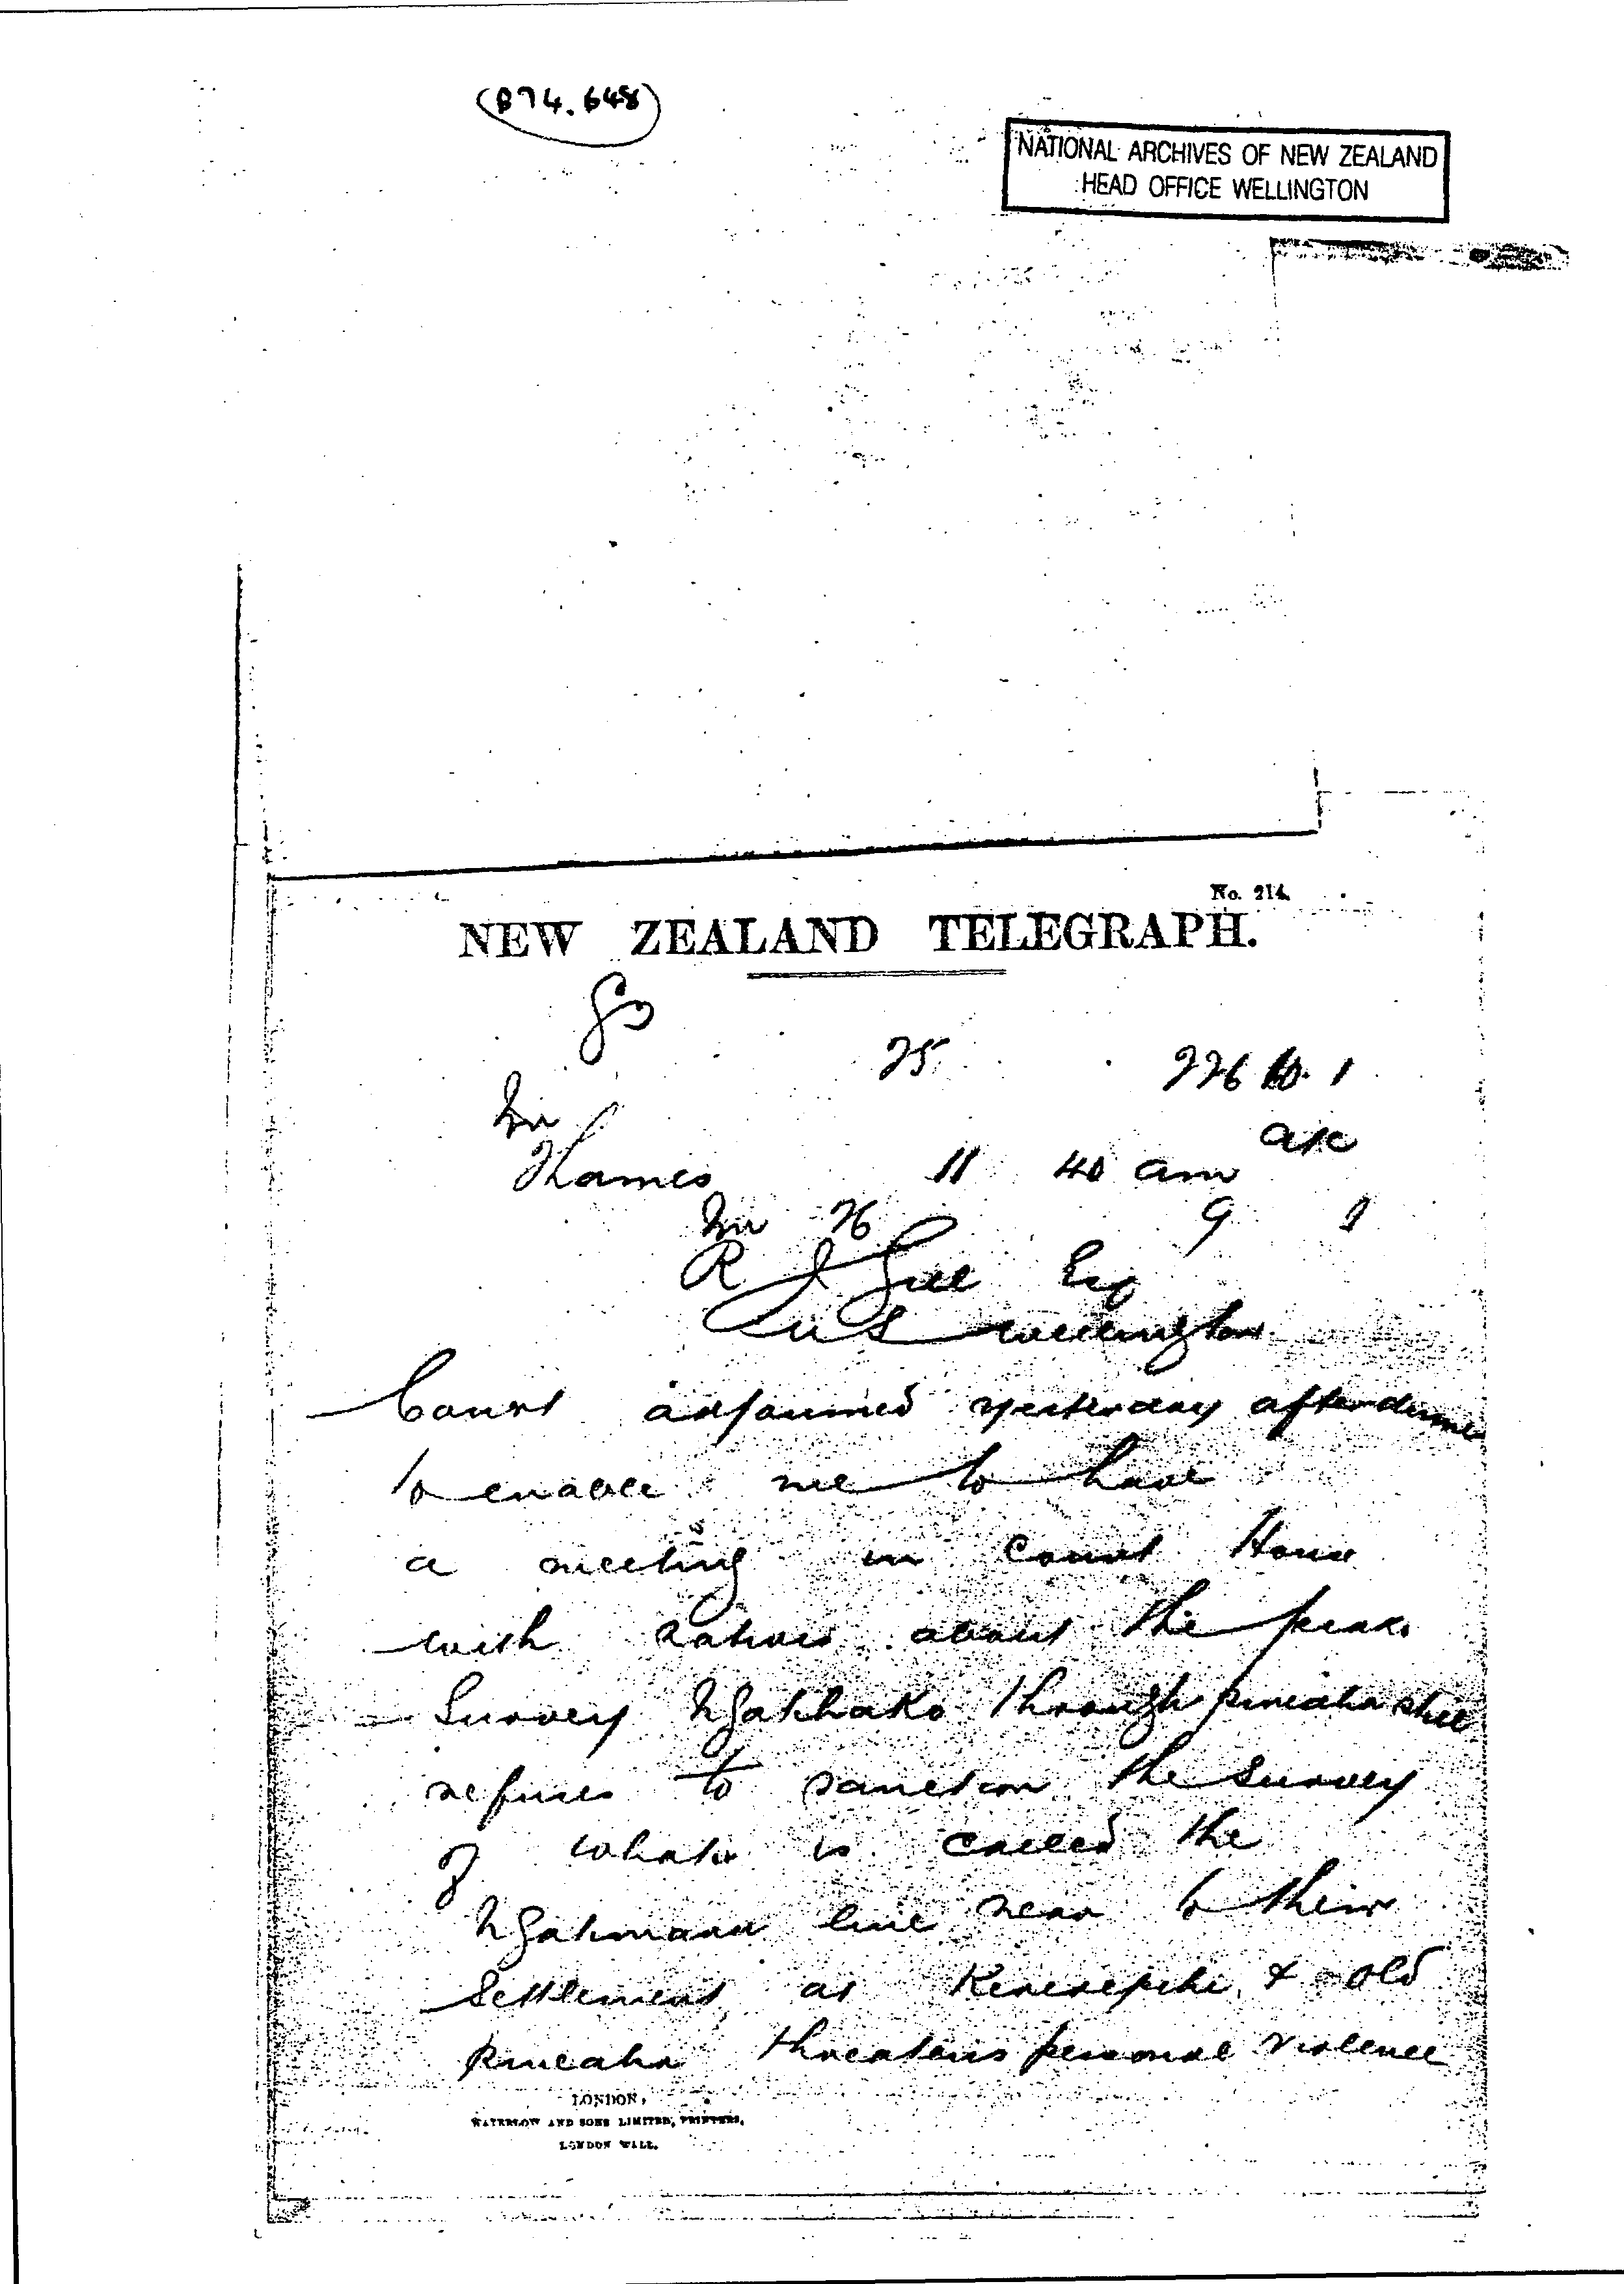 (B74.648)
NATIONAL ARCHIVES OF NEW ZEALAND
HEAD OFFICE WELLINGTON
No. 214.
NEW ZEALAND TELEGRAPH.
25
Thames 11 40 am
26 9
R J Gill Esq
Wellington
Court adjourned yesterday
to enable me to have
a meeting in Court House
with natives about the
Survey Ngatihako through
refuses to sanction the Survey
of what is called the
Ngatimaru line near to their
Settlement at & old
threatens personal violence
LONDON,
WATERLOW AND SONS LIMITED, PRINTERS,
LONDON WALL.